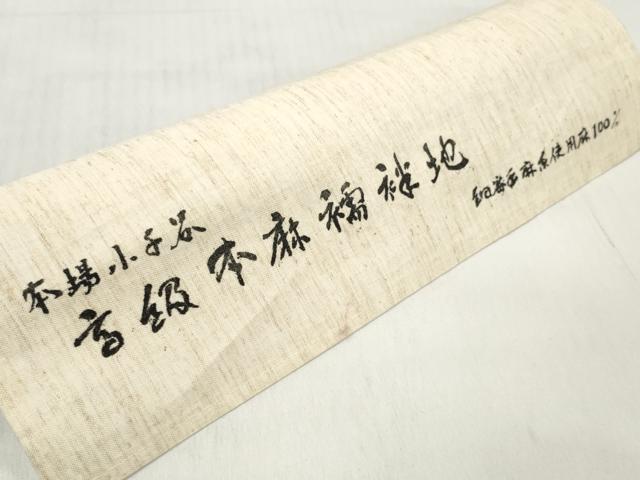 本場小千谷
高級本麻襦袢地
細番手麻糸使用麻100%